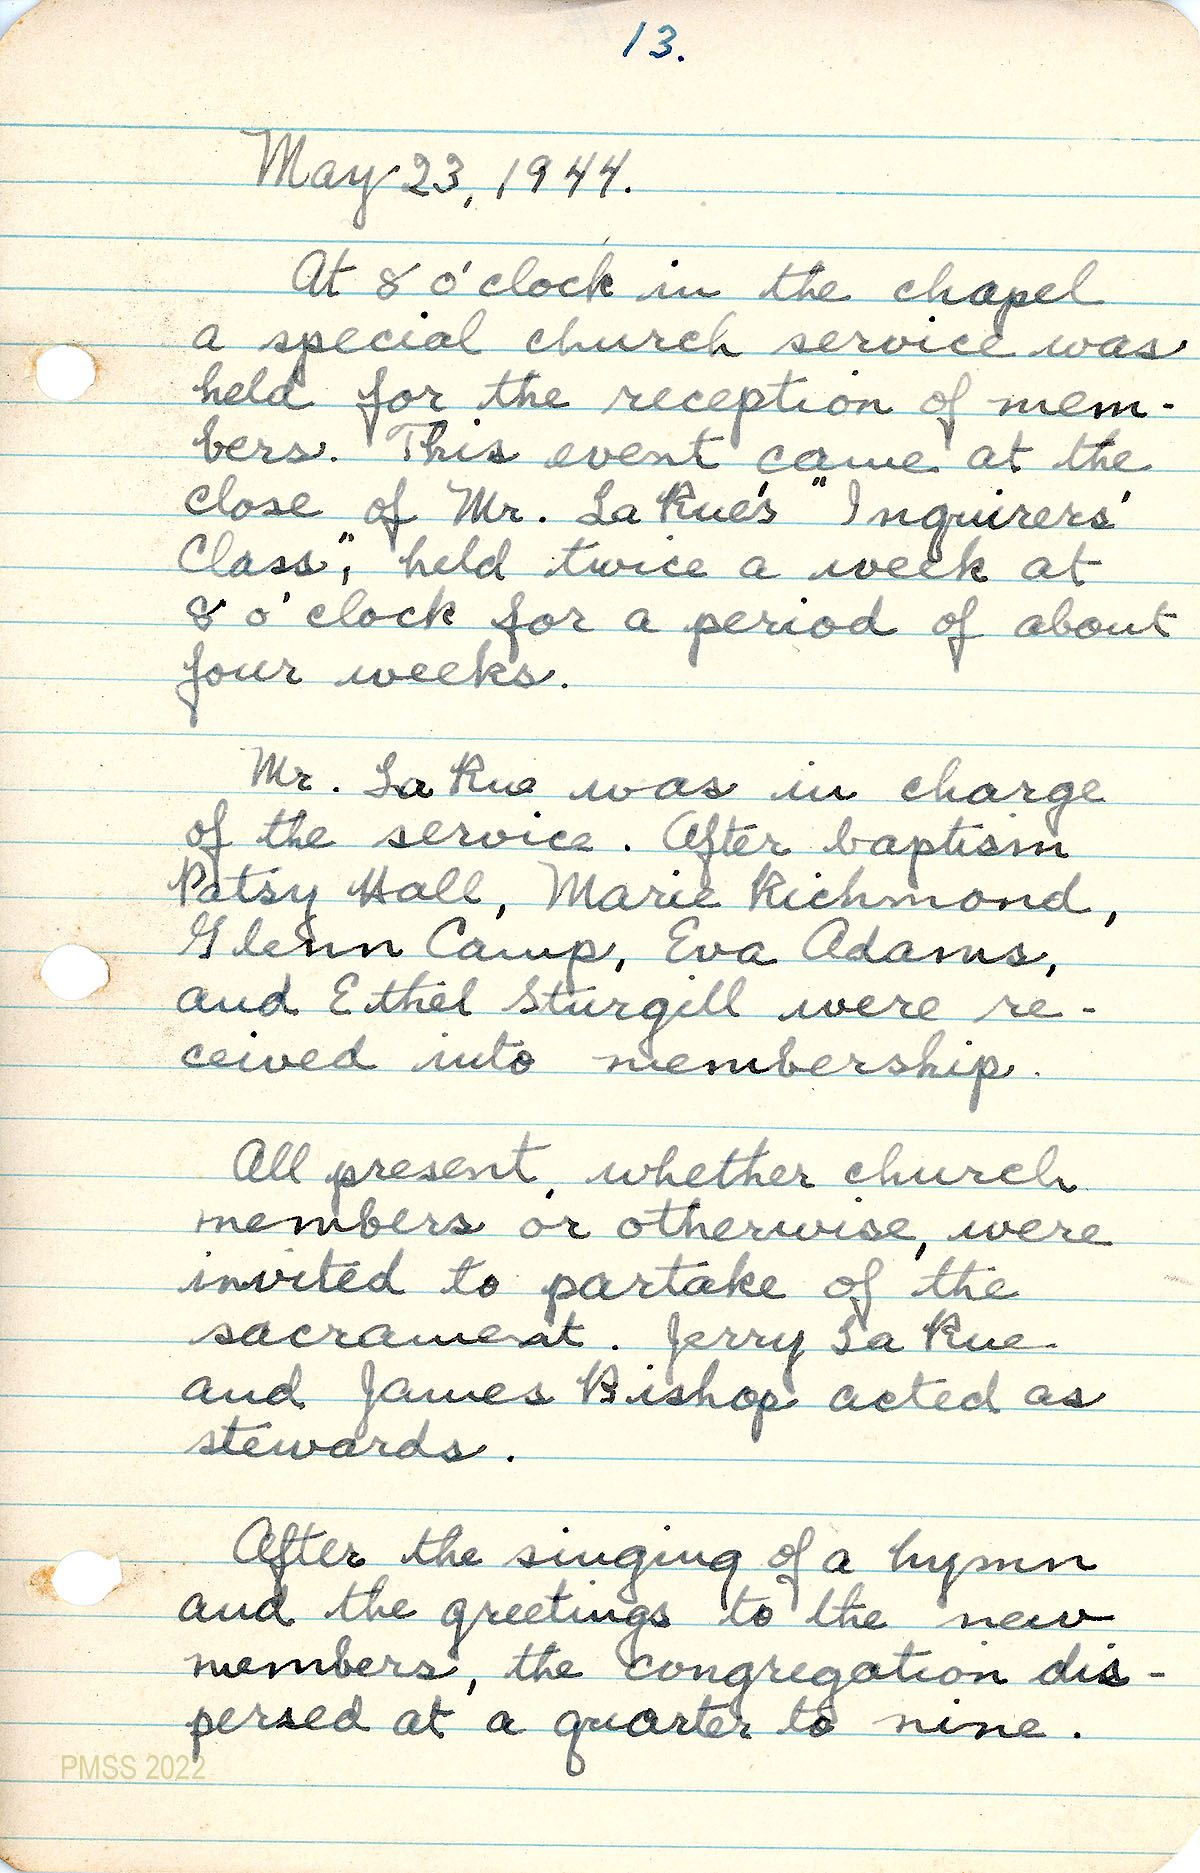 13.
May 23, 1944.
At 8 o'clock in the chapel
a special church service was
held for the reception of mem-
bers. This event came at the
close of Mr. La Rue's "Inquirers'
Class", held twice a week at
8 o'clock for a period of about
four weeks.
Mr. La Rue was in charge
of the service. After baptism
Patsy Hall, Marie Richmond,
Glenn Camp, Eva Adams,
and Ethel Sturgill were re-
ceived into membership.
All present, whether church
members or otherwise, were
invited to partake of the
sacrament. Jerry La Rue
and James Bishop acted as
stewards.
After the singing of a hymn
and the greetings to the new
members, the congregation dis-
persed at a quarter to nine.
PMSS 2022